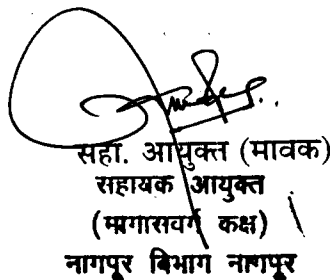 सहा. आयुक्त (मावक)
सहायक आयुक्त
(मागासवर्ग कक्ष)
नागपूर विभाग नागपूर